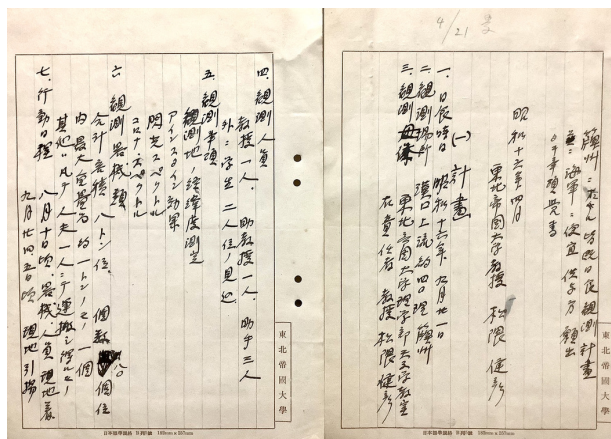 4/21
蘄州ニ於ケル皆既日食観測計畫
ニ海軍ニ便宜供与方願出
ノ件事項覚書
昭和十六年四月
東北帝国大学教授 松隈健彦
(一) 計畫
一、日食時日 昭和十六年九月廿一日
二、観測場所 漢口上流約四〇哩蘄州
三、観測 東北帝国大学理学部天文学教室
右責任者 教授 松隈健彦
東北帝國大學
日本標準規格 B列5號 182mm×257mm
四、観測人員
教授一人、助教授一人、助手三人
外ニ学生二人位ノ見込
五、観測事項
観測地ノ経緯度測定
アインスタイン効果
閃光スペクトル
コロナ・スペクトル
六、観測器械類
合計容積 八トン位、個数 八〇個位
内最大重量ノモノ約一トンノモノ一個
其他ハ凡テ人夫一人ニテ運搬シ得ルモノ
七、行動日程
八月十日頃 器械、人員現地着
九月廿四五日頃 現地引揚
東北帝國大學
日本標準規格 B列5號 182mm×257mm